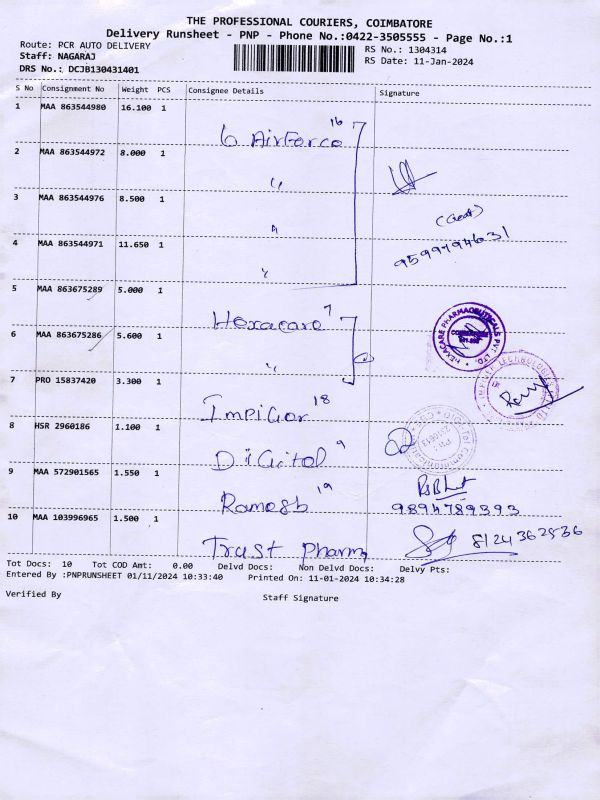 THE PROFESSIONAL COURIERS, COIMBATORE
Delivery Runsheet - PNP - Phone No.:0422-3505555 - Page No.:1
Route: PCR AUTO DELIVERY
RS No.: 1304314
Staff: NAGARAJ
RS Date: 11-Jan-2024
DRS No.: DCJB130431401
S No Consignment No Weight PCS Consignee Details Signature
1 MAA 863544980 16.100 1
6 AirForce 16
2 MAA 863544972 8.000 1
"
3 MAA 863544976 8.500 1
"
4 MAA 863544971 11.650 1
"
5 MAA 863675289 5.000 1
Hexacare 7
6 MAA 863675286 5.600 1
"
HEXACARE PHARMACEUTICALS PVT. LTD.
7 PRO 15837420 3.300 1
Impiger 18
8 HSR 2960186 1.100 1
Digital 9
9 MAA 572901565 1.550 1
Ramesh 19
9894789393
10 MAA 103996965 1.500 1
Trust Pharma
8124362536
Tot Docs: 10 Tot COD Amt: 0.00 Delvd Docs: Non Delvd Docs: Delvy Pts:
Entered By :PNPRUNSHEET 01/11/2024 10:33:40 Printed On: 11-01-2024 10:34:28
Verified By
Staff Signature